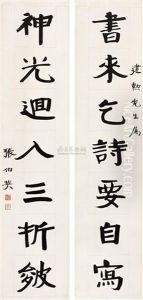 建勳先生屬
書來乞詩要自寫
神光迴入三折
張伯英